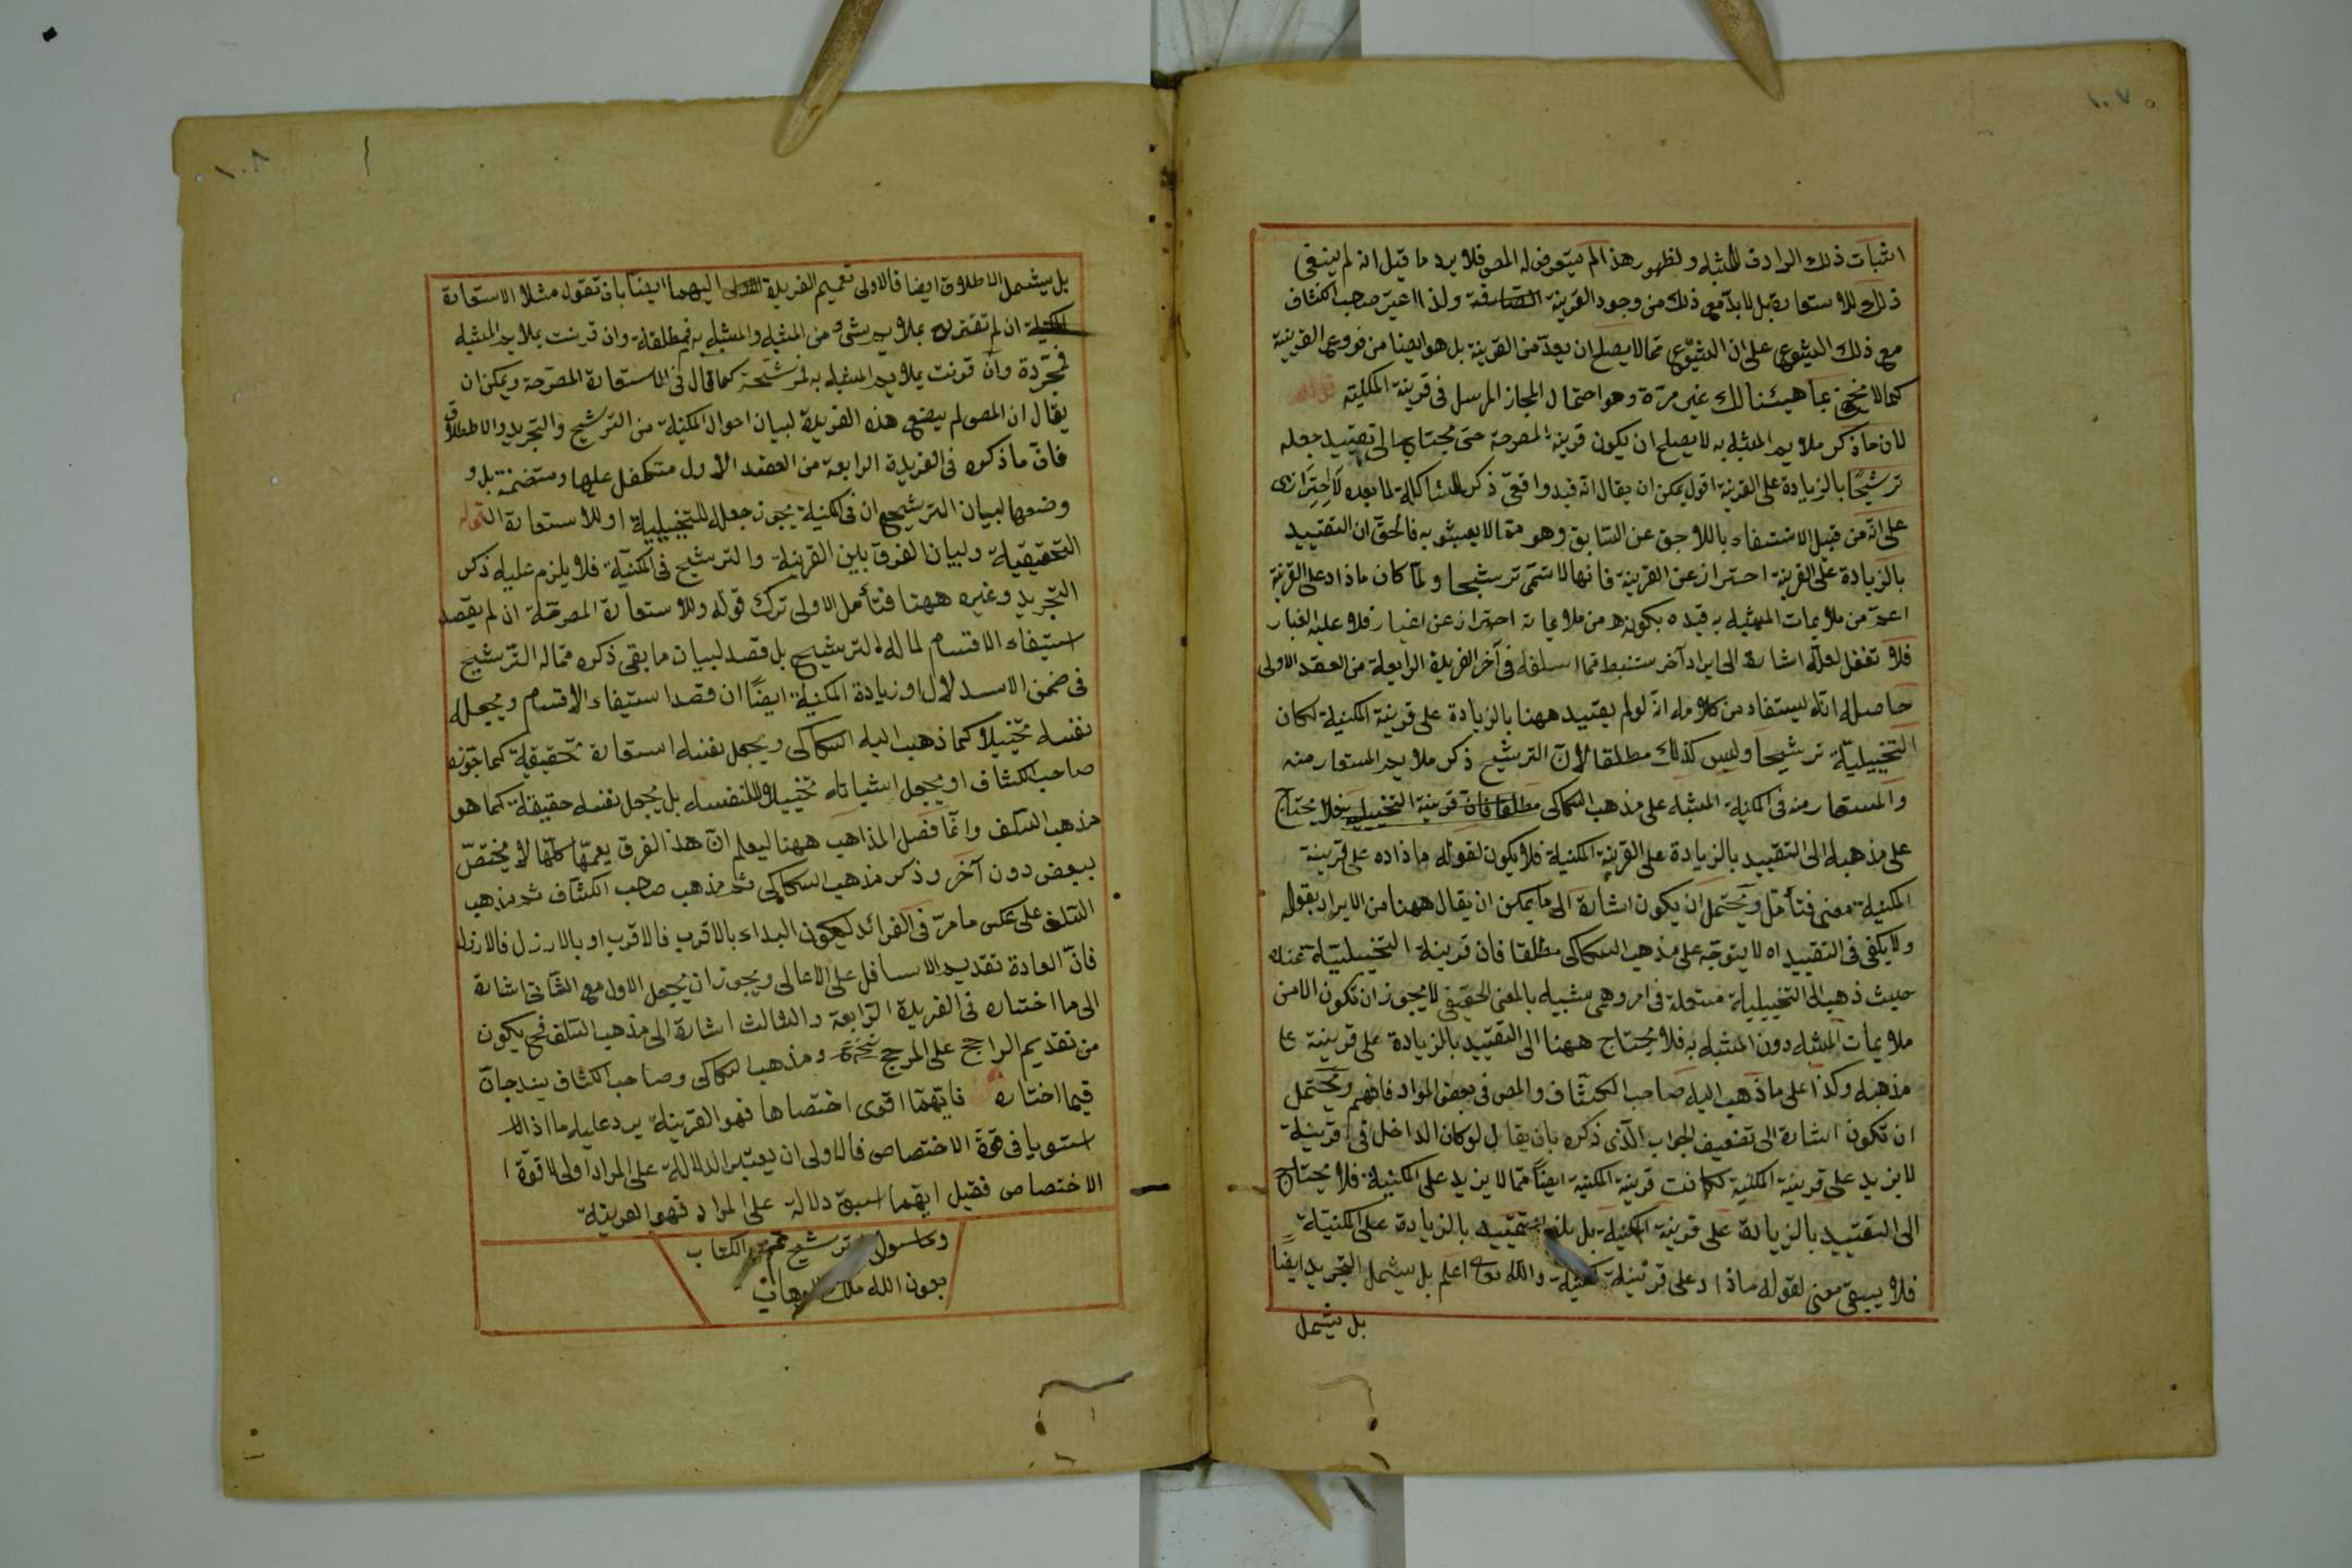 ١٠٧
اثبات ذلك الرادف للمشبه ولظهور هذا لم يتعرض له المص فلا يرد ما قيل انه لم ينبغى
ذلك للاستعارة بل لابد مع ذلك من وجود القرينة ولذا اعتبر صاحب الكشاف
مع ذلك الشيوع على ان الشيوع مما لا يصلح ان يعد من القرينة بل هو ايضا من فروع القرينة
كما لا يخفى غير مرة وهو احتمال المجاز المرسل فى قرينة المكنية قوله
لان ما ذكر ملايم المشبه به لا يصلح ان يكون قرينة المصرحة حتى يحتاج الى تقييد جعله
ترشيحا بالزيادة على القرينة اقول يمكن ان يقال انه قيد واقعى ذكر للمشاكلة لما بعده لا احترازى
على انه من قبيل الاستغناء باللاحق عن السابق وهو مما لا يعبئو به فالحق ان التقييد
بالزيادة على القرينة احتراز عن القرينة فانها لا تسمى ترشيحا ولما كان ما زاد على القرينة
اعم من ملايمات المشبه به قيده بكونه من ملايماته احتراز عن اغيار فلا عليه الغبار
فلا تغفل لعله اشارة الى ايراد آخر ستنبط مما اسلفه فى آخر الفريدة الرابعة من العقد الاولى
حاصله انه يستفاد من كلامه انه لو لم يقيد ههنا بالزيادة على قرينة المكنية لكان
التخييلية ترشيحا وليس كذلك مطلقا لان الترشيح ذكر ملايم المستعار منه
والمستعار منه فى المكنية المشبه على مذهب السكاكى مطلقا فان قرينة التخييلية فلا يحتاج
على مذهبه الى التقييد بالزيادة على القرينة المكنية فلا يكون لقوله ما زاده على قرينة
المكنية معنى فتأمل ويحتمل ان يكون اشارة الى ما يمكن ان يقال ههنا من الايراد بقوله
ولا يكفى فى التقييد اه لا يتوجه على مذهب السكاكى مطلقا فان قرينة التخييلية عنده
حيث ذهب الى التخييلية مستعملة فى امر وهمى شبيه بالمعنى الحقيقى لا يجوز ان تكون الا من
ملايمات المشبه دون المشبه به فلا يحتاج ههنا الى التقييد بالزيادة على قرينة
مذهبه وكذا على ما ذهب اليه صاحب الكشاف والمص فى بعض المواد فافهم ويحتمل
ان تكون اشارة الى تضعيف الجواب الذى ذكره بان يقال لو كان الداخل فى قرينة
لا يزيد على قرينة المكنية لكانت قرينة المكنية ايضا مما لا يزيد على المكنية فلا يحتاج
الى التقييد بالزيادة على قرينة المكنية بل بالزيادة على المكنية
فلا يبقى معنى لقوله ما زاد على قرينة المكنية والله اعلم بل يشمل التجريد ايضا
بل يشمل
١٠٨
بل يشمل الاطلاق ايضا فالاولى تعميم الفريدة اليهما ايضا بان تقول مثلا الاستعارة
ان لم تقترن بملايم شئ من المشبه والمشبه به فمطلقة وان قرنت بملايم المشبه
فمجردة وان قرنت بملايم المشبه به فمرشحة كما قال فى الاستعارة المصرحة ويمكن ان
يقال ان المص لم يضع هذه الفريدة لبيان احوال المكنية من الترشيح والتجريد والاطلاق
فان ما ذكره فى الفريدة الرابعة من العقد الاول متكفل عليها ومتضمنة بل و
وضعها لبيان الترشيح ان فى المكنية يجوز جعله للتخييلية او للاستعارة
التحقيقية ولبيان الفرق بين القرينة والترشيح فى المكنية فلا يلزم عليه ذكر
التجريد وغيره ههنا فتأمل الاولى ترك قوله وللاستعارة المصرحة ان لم يقصد
استيفاء الاقسام لما له الترشيح بل قصد لبيان ما بقى ذكره مما له الترشيح
فى ضمن الاستدلال او زيادة المكنية ايضا ان قصد استيفاء الاقسام ويجعله
نفسه تخييلا كما ذهب اليه السكاكى ويجعل نفسه استعارة تحقيقية كما جوزه
صاحب الكشاف او يجعل اثباته تخييلا لا نفسه بل يجعل نفسه حقيقة كما هو
مذهب السلف وانما فصل المذاهب ههنا ليعلم ان هذا الفرق يعمها كلها لا يختص
ببعض دون آخر وذكر مذهب السكاكى ثم مذهب صاحب الكشاف ثم مذهب
السلف على عكس ما مر فى الفرائد ليكون البداء بالاقرب فالاقرب او بالارذل فالارذل
فان العادة تقديم الاسافل على الاعالى ويجوز ان يجعل الاول مع الثانى اشارة
الى ما اختاره فى الفريدة الرابعة والثالث اشارة الى مذهب السلف فح يكون
من تقديم الراجح على المرجح ومذهب السكاكى وصاحب الكشاف يندرجان
فيما اختاره فايهما اقوى اختصاصا فهو القرينة يرد عليه ما اذا
استويا فى قوة الاختصاص فالاولى ان يعتبر الدلالة على المراد اولى لا قوة
الاختصاص فقيل ايهما اسبق دلالة على المراد فهو القرينة
وما سواه ترشيح تم الكتاب
بعون الله ملك الوهاب